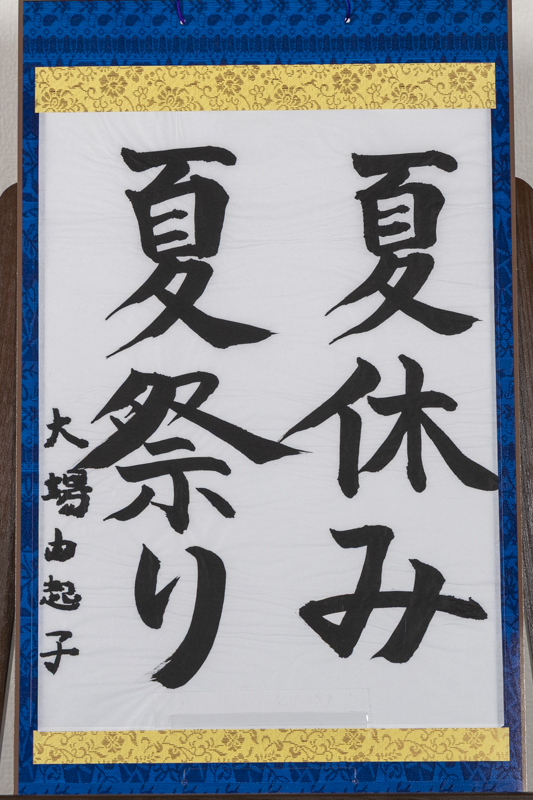 夏休み
夏祭り
大場由起子